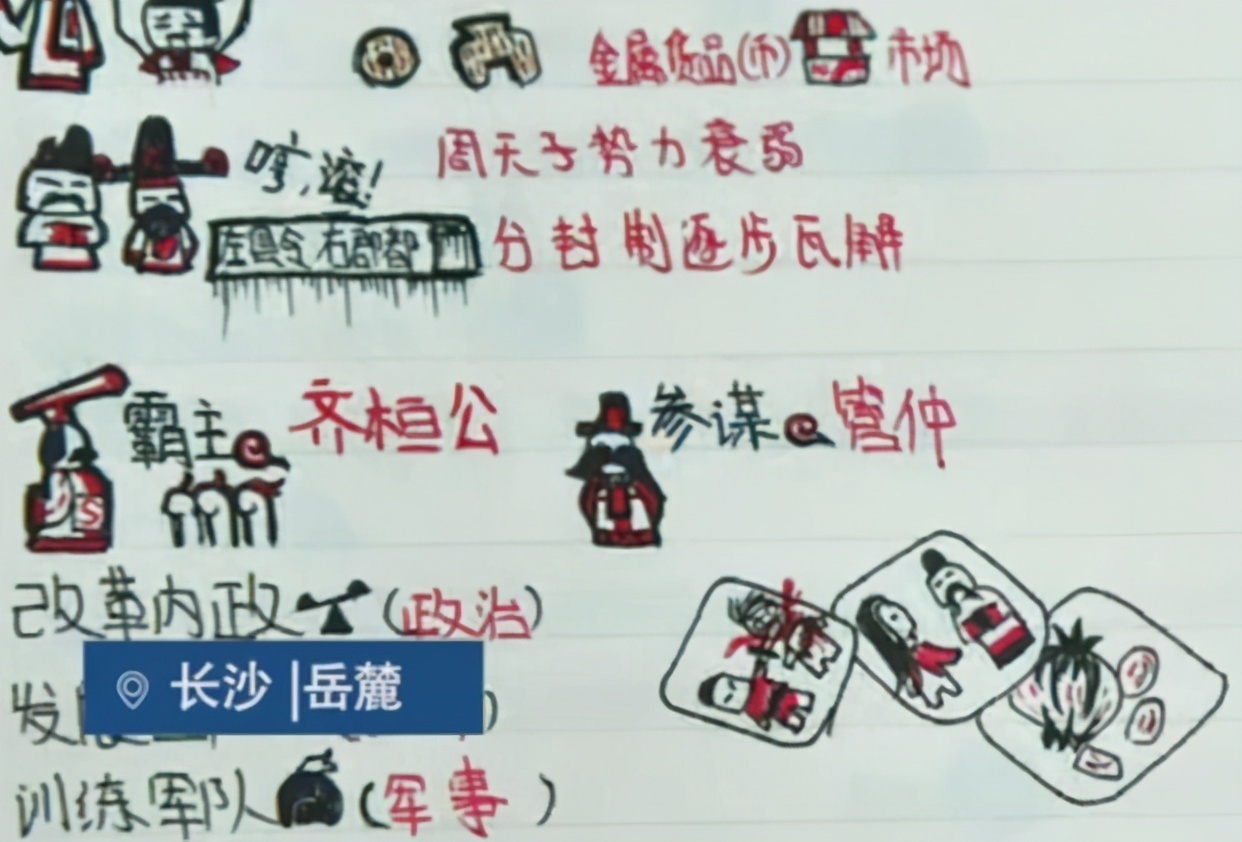 金属货品(币) 市场
哼,滚!
周天子势力衰弱
左县令 右郡都
分封制逐步瓦解
霸主 齐桓公 参谋 管仲
改革内政 (政治)
长沙 | 岳麓
发
训练军队 (军事)